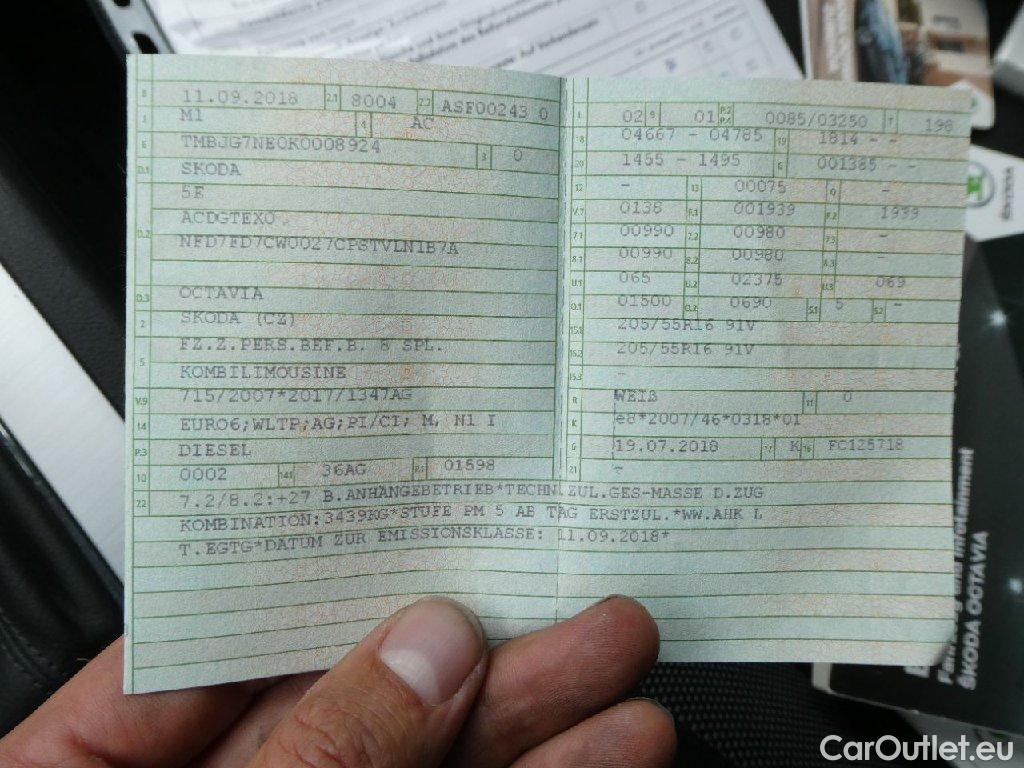 B 11.09.2018 2.1 8004 2.2 ASF00243 0
J M1 4 AC
E TMBJG7NE0K0008924 3 0
D.1 SKODA
5E
D.2 ACDGTEX0
NFD7FD7CW0027CPSTVLN1B7A
D.3 OCTAVIA
2 SKODA (CZ)
5 FZ.Z.PERS.BEF.B. 8 SPL.
KOMBILIMOUSINE
V.9 715/2007*2017/1347AG
14 EURO6;WLTP;AG;PI/CI; M, N1 I
P.3 DIESEL
10 0002 14.1 36AG P.1 01598
L 02 9 01 P.2 P.4 0085/03250 T 198
18 04667 - 04785 19 1814 - -
20 1455 - 1495 G 001385 - -
12 - 13 00075 Q -
V.7 0138 F.1 001939 F.2 1939
7.1 00990 7.2 00980 7.3 -
8.1 00990 8.2 00980 8.3 -
U.1 065 U.2 02375 U.3 069
O.1 01500 O.2 0690 S.1 5 S.2 -
15.1 205/55R16 91V
15.2 205/55R16 91V
15.3 -
R WEIß 11 0
K e8*2007/46*0318*01
6 19.07.2018 17 K 16 FC125718
21 -
22 7.2/8.2:+27 B.ANHÄNGEBETRIEB*TECHN.ZUL.GES-MASSE D.ZUG
KOMBINATION:3439KG*STUFE PM 5 AB TAG ERSTZUL.*WW.AHK L
T.EGTG*DATUM ZUR EMISSIONSKLASSE: 11.09.2018*
ŠKODA
and Infotainment
ŠKODA OCTAVIA
CarOutlet.eu